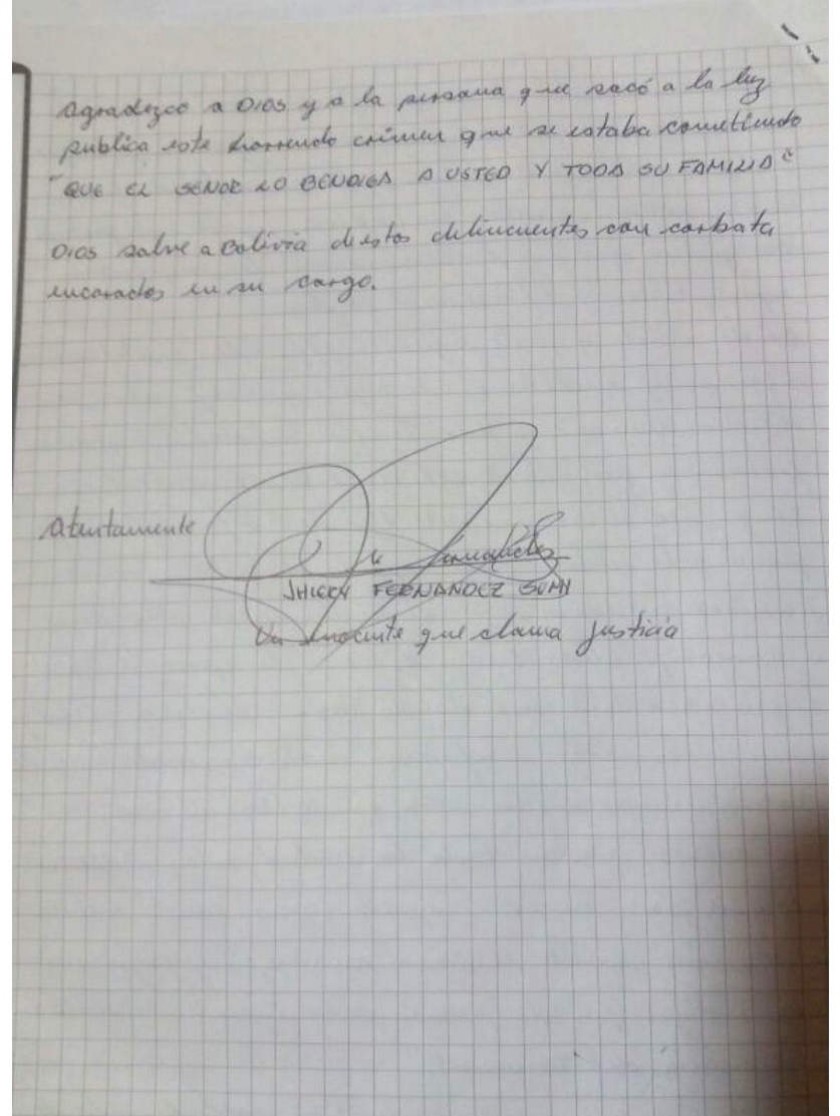 Agradezco a DIOS y a la persona que sacó a la luz
publica este horrendo crimen que se estaba cometiendo
"QUE EL SEÑOR LO BENDIGA A USTED Y TODA SU FAMILIA"
DIOS salve a Bolivia de estos delincuentes con corbata
encarados en su cargo.
Atentamente
JHIERY FERNANDEZ GUMI
Un inocente que clama justicia